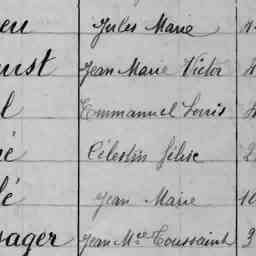 eu Jules Marie
ust Jean Marie Victor
l Emmanuel Louis
é Célestin félise
lé Jean Marie 10
sager Jean Mce Toussaint 3